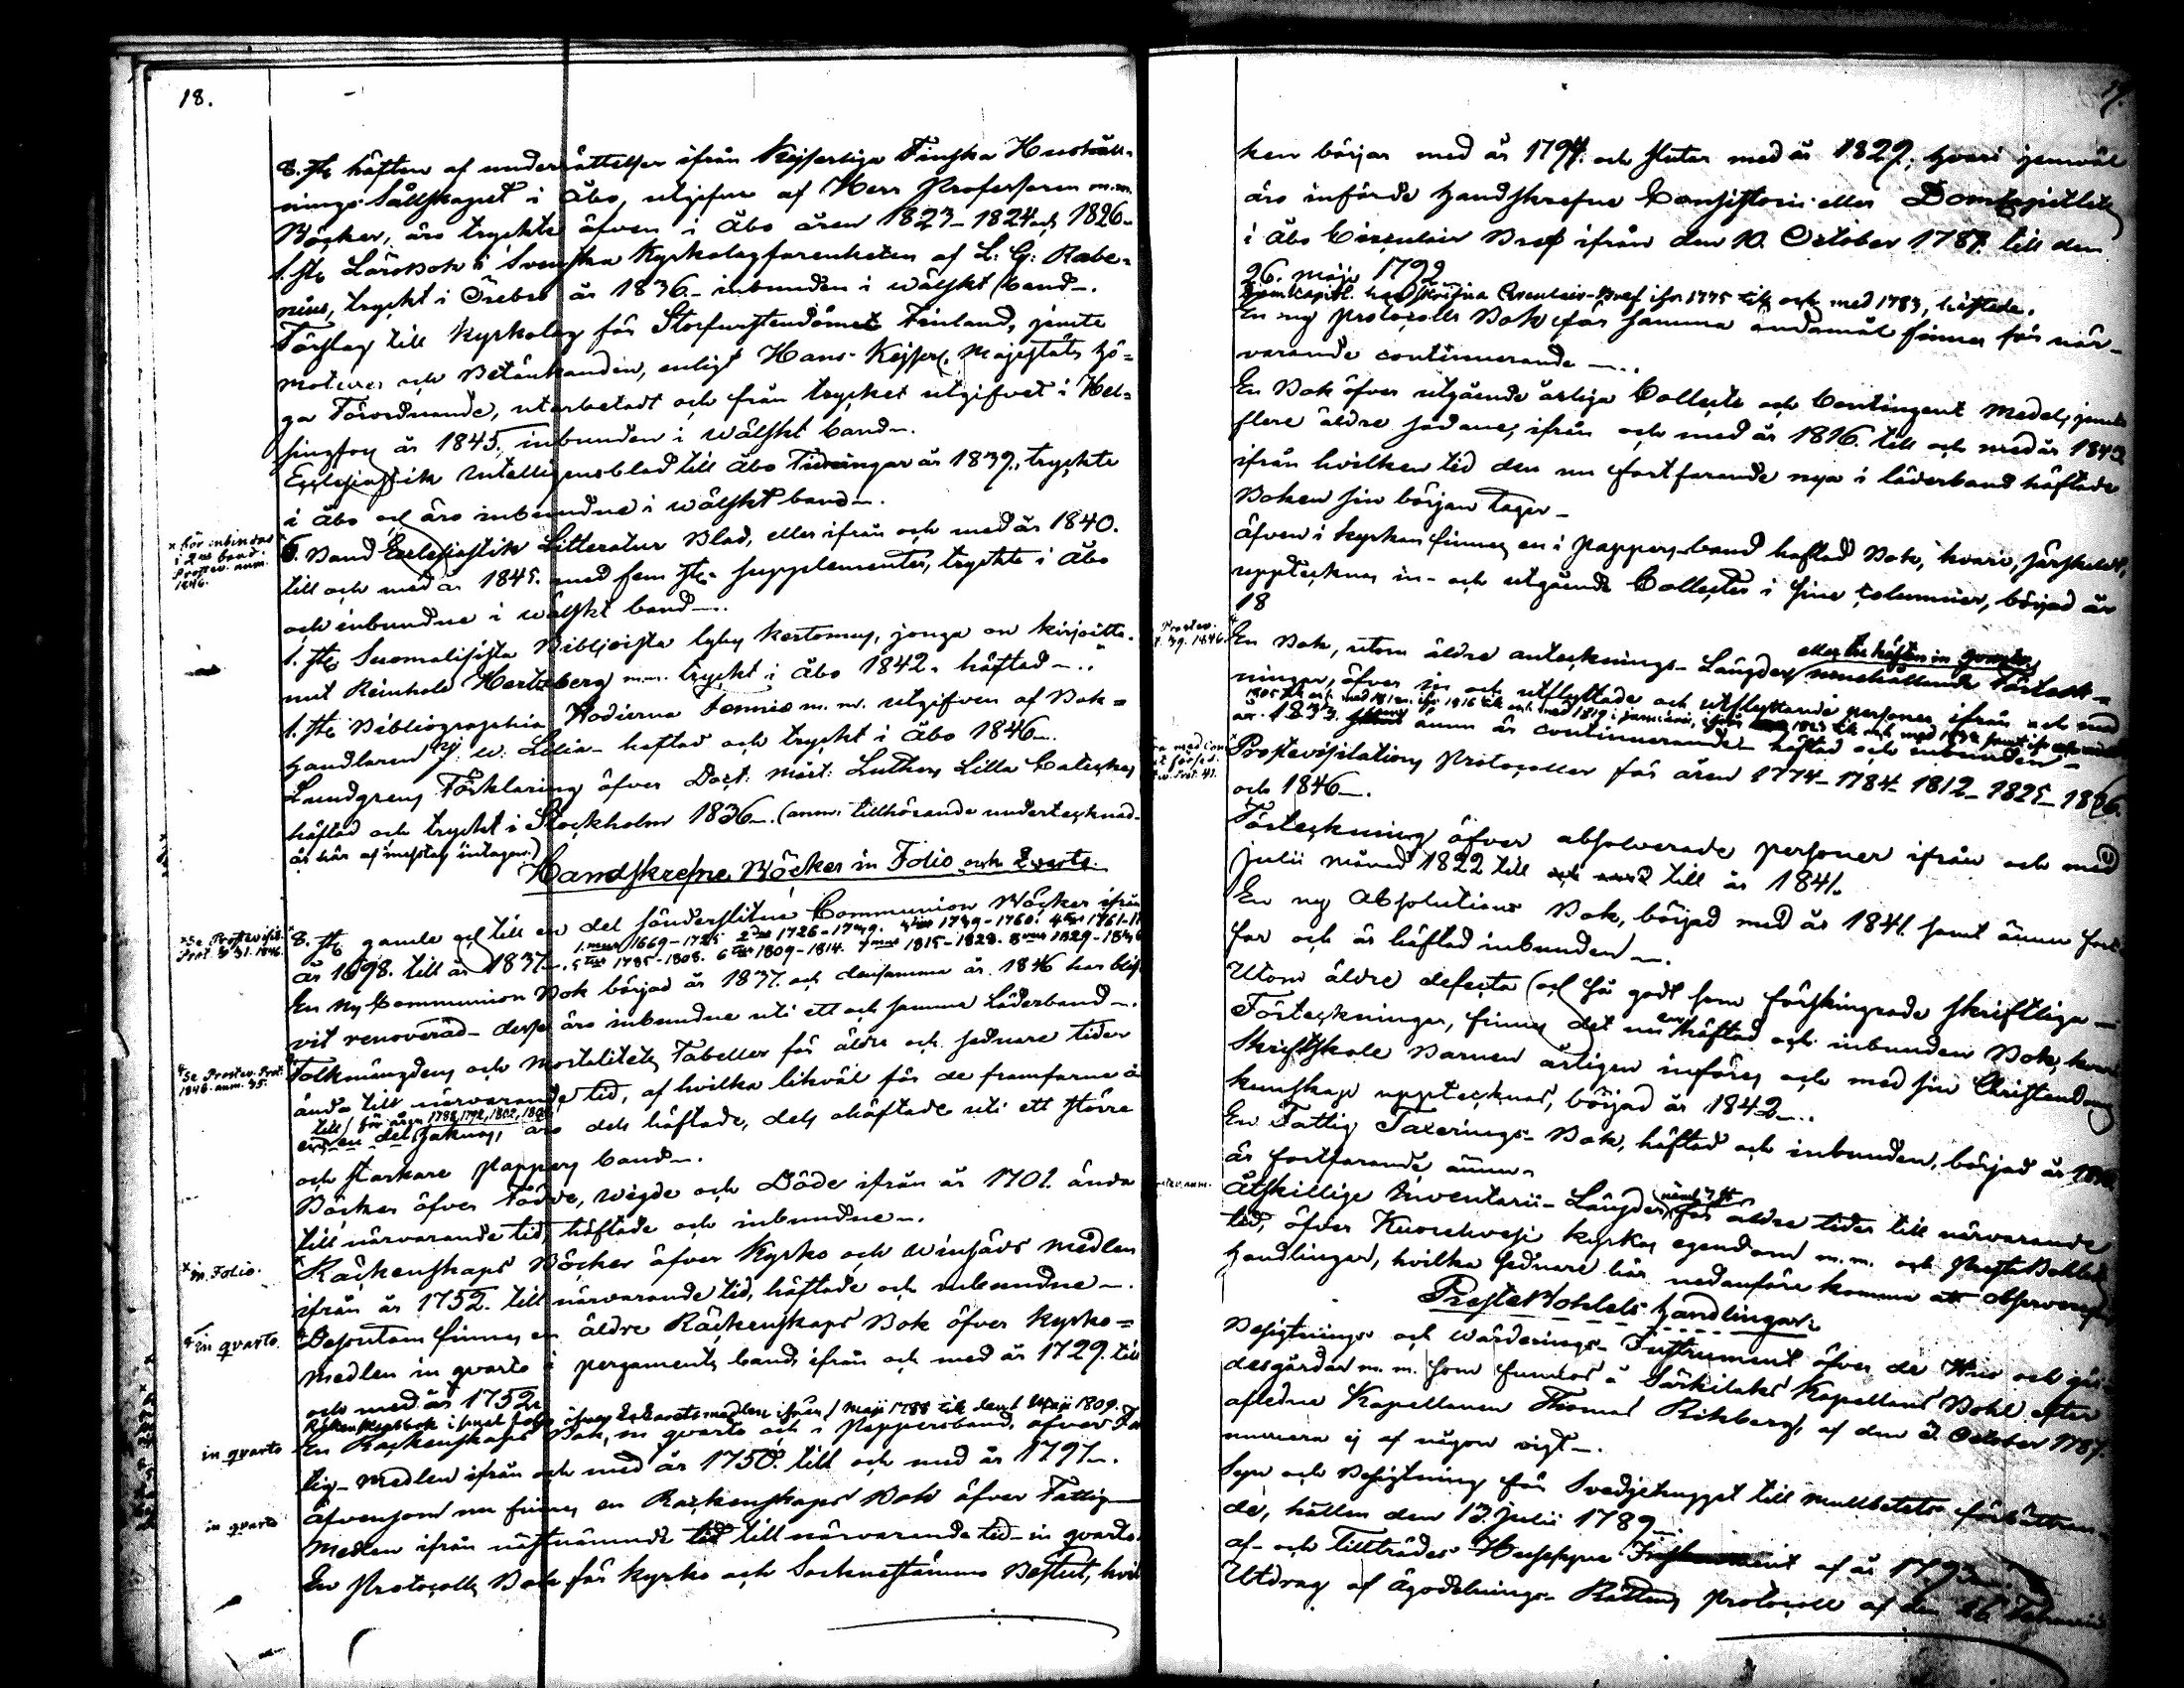 18.
8. st. häften af underrättelser ifrån Kejserliga Finska Hushåll-
nings Sällskapet i Åbo, utgifne af Herr Professoren m.m.
Böcker, äro tryckte äfven i Åbo åren 1823-1824 och 1826-
1. st. Lärobok i Svenska Kyrkolagfarenheten af L: G: Rabe-
nius, tryckt i Örebro år 1836.- inbunden i wälskt band-.
Förslag till Kyrkolag för Storfurstendömet Finland, jemte
motiver och Betänkanden, enligt Hans Kejserl. Majestäts Hö-
ga Förordnande, utarbetadt och från trycket utgifvet i Hel-
singfors år 1845, inbunden i wälskt band-.
Ecclesiastik Intelligensblad till Åbo Tidningar år 1839, tryckte
i Åbo och äro inbundne i wälskt band-.
x bör inbindas
i 2ne band.
Prostev. anm.
1846.
6. Band Ecclesiastik Litteratur Blad, eller ifrån och med år 1840.
till och med år 1845. med fem st. supplementer, tryckte i Åbo
och inbundne i wälskt band-.
1. st. Suomalisista Bibljoista lyhy kertomus, jonga on kirjoitta-
nut Reinhold Hertzberg m.m. tryckt i Åbo 1842. häftad-.
1. st. Bibliographia Hodierna Fennica m. m. utgifven af Bok-
handlaren J. W. Lilia- häftad och tryckt i Åbo 1846-.
Lundgrens Förklaring öfver Doct: Mårt: Luthers Lilla Cateches
häftad och tryckt i Stockholm 1836-. (anm. tillhörande undertecknad-
är här af misstag intagen.)
Handskrefne Böcker in Folio och Qvarto.
x Se Prostevisit.
Prot. § 31. 1846.
8. st. gamle och till en del sönderslitne Communion Böcker ifrån
1.mus 1669-1725 2dus 1726-1749. 3tius 1749-1760. 4tus 1761-17
år 1698. till år 1837-. 5tus 1785-1808. 6tus 1809-1814. 7mus 1815-1828. 8vus 1829-1836
En Ny Communion Bok börjad år 1837. och densamma år 1846 har blif-
vit renoverad- desse äro inbundne uti ett och samma läderband-.
x Se Prostev. Prot.
1846. anm. 35.
Folkmängdens och Mortalitets Tabeller för äldre och sednare tider
ända till närvarande tid, af hvilka likväl för de framfarne å
till för åren 1788, 1792, 1802, 180
en del saknas, äro dels häftade, dels ohäftade uti ett större
och starkare pappers band-.
Böcker öfver Födde, wigde och Döde ifrån år 1701 ända
till närvarande tid, häftade och inbundne-.
x in Folio.
Räkenskaps Böcker öfver Kyrko och winjärs Medlen
ifrån år 1752. till närvarande tid, häftade och inbundne-.
x in qvarto.
Desutom finnes en äldre Räkenskaps Bok öfver Kyrko-
medlen in qvarto i pergaments band ifrån och med år 1729. till
och med år 1752.
Räkenskapsbok i smal folio öfver medlen ifrån 1 Maji 1788 till den 1 Maji 1809.
in qvarto
En Räkenskaps Bok, in qvarto och i Pappersband, öfver Fat
tig- medlen ifrån och med år 1750. till och med år 1797-.
in qvarto
Äfvensom nu finnes en Räkenskaps Bok öfver Fattig-
Medlen ifrån nästnämnde tid till närvarande tid- in qvarto.
En Protocolls Bok för Kyrko och Sockne stämmo Beslut, hvil
19.
ken börjas med år 1794. och slutas med år 1829, hvari jemväl
äro införde handskrefne Consistorii eller Domcapitlets
i Åbo Circulair Bref ifrån den 10. October 1787. till den
26. Maji 1792
Domcapitl. handskrifna Circulair-Bref ifrån 1775 till och med 1783, häftade.
En ny Protocolls Bok för samma ändamål finnes för när-
varande continuerande-.
En Bok öfver utgående årliga Collecte och Contingent Medel, jemte
flere äldre sådane, ifrån och med år 1816. till och med år 1842
ifrån hvilken tid den nu fortfarande nya i läderband häftade
Boken sin början tager-
Äfven i Kyrkan finnes en i Pappers-band häftad Bok, hvari, särskildt,
upptecknas in- och utgående Collecter i sine columner, börjad år
18
Prostev.
§. 39. 1846.
En Bok, utom äldre antecknings-Längder eller tre häften in qvarto, innehållande Förteck-
ningar, öfver in och utflyttade och utflyttande personer ifrån och med
1805 till och med 1812. ifr. 1816 till och med 1819
år 1833. ännu är continuerande- häftad och inbunden-
Prostevisitations Protocoller för åren 1774-1784-1812-1825-1836.
och 1846-.
Förteckning öfver absolverade personer ifrån och med
Julii månad 1822 till till år 1841.
En ny Absolutions Bok, börjad med år 1841. samt ännu fort-
far och är häftad inbunden-.
Utom äldre defecta och så godt som förskingrade skriftliga-
Förteckningar, finnes det nu en häftad och inbunden Bok, hvari
Skriftskole Barnen årligen införes och med sin Christendoms
kunskap upptecknas, börjad år 1842-.
En Fattig Taxerings-Bok, häftad och inbunden, börjad år
är fortfarande ännu-
Åtskillige Inventarii-Längder för äldre tider till närvarande
tid, öfver Kuorehvesi kyrkas egendom m.m. och Preste Bohlets
handlingar, hvilka sednare här nedanföre komma att observeras
Preste Bohlets handlingar.
Besigtnings och Wärderings-Instrument öfver de Hus och går-
desgårdar m.m. som funnos å Särkilaks Kapellans Bohl efter
aflidne Kapellanen Thomas Rihberg, af den 3. October 1787.
numera ej af någon vigt-.
Syn och Besigtning för Svedjehygget till mullbetets förbättran-
de, hållen den 13. Julii 1789-.
Af- och Tillträdes Husesyne Instrument af år 1793-.
Utdrag af Ägodelnings-Rättens Protocoll af den 26. Februarii